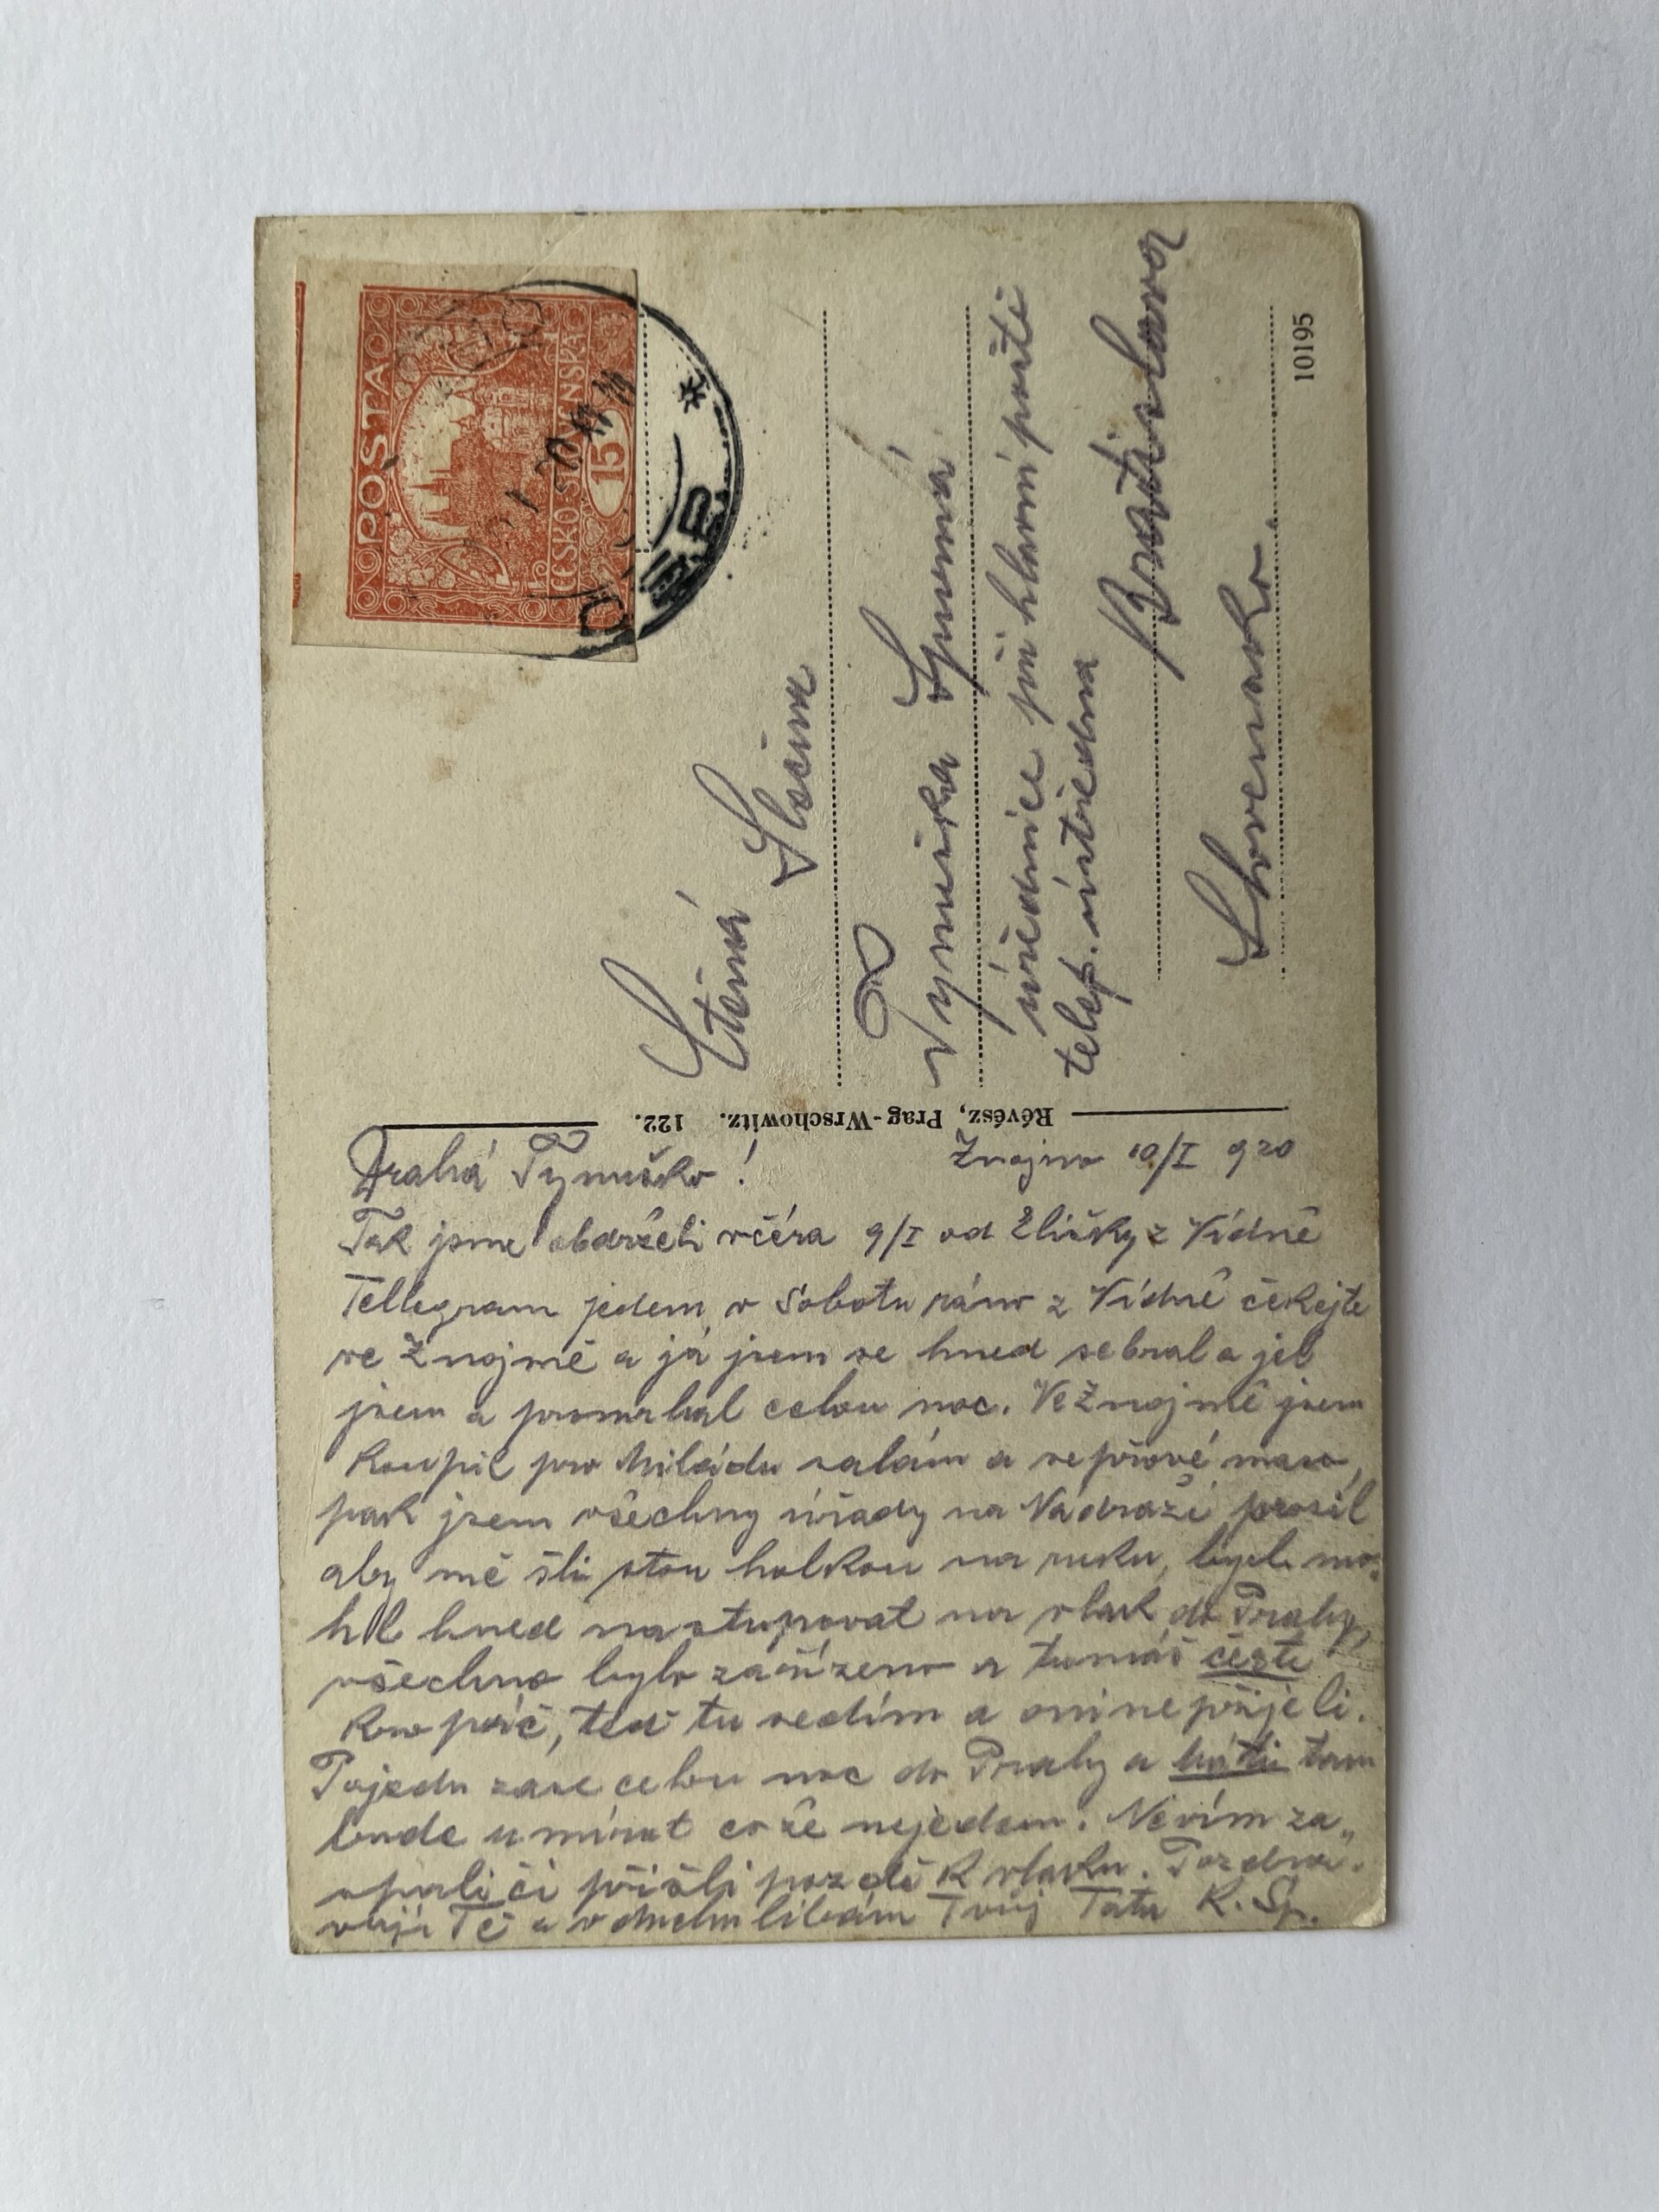 POSTA
ČESKO-SLOVENSKÁ
15
Ctěná
Slečna
Tynuška Špumová
úřednice při hlavní poště
telef. ústředna
Bratislava
Slovensko.
10195
Révész, Prag-Wrschowitz. 122.
Drahá Tynuško! Znojmo 10/I 920
Tak jsme obdrželi včéra 9/I od Elišky z Vídně
Tellegram jedem v Sobotu ráno z Vídně čekejte
ve Znojmě a já jsem se hned sebral a jel
jsem a promrhal celou noc. Ve Znojmě jsem
koupil pro Miládu salám a vepřové maso,
pak jsem všechny úřady na Nádraží prosil
aby mě šli stou holkou na ruku, bych mo-
hl hned nastupovat na vlak do Prahy,
všechno bylo zařízeno a tumáš čerte
kropáč, teď tu sedím a oni nepřijeli.
Pojedu zase celou noc do Prahy a tam
bude umírat co že nejedem. Nevím za„
spali či přišli pozdě k vlaku. Pozdra-
vuji Tě a v duchu líbám Tvůj Táta K. Šp.